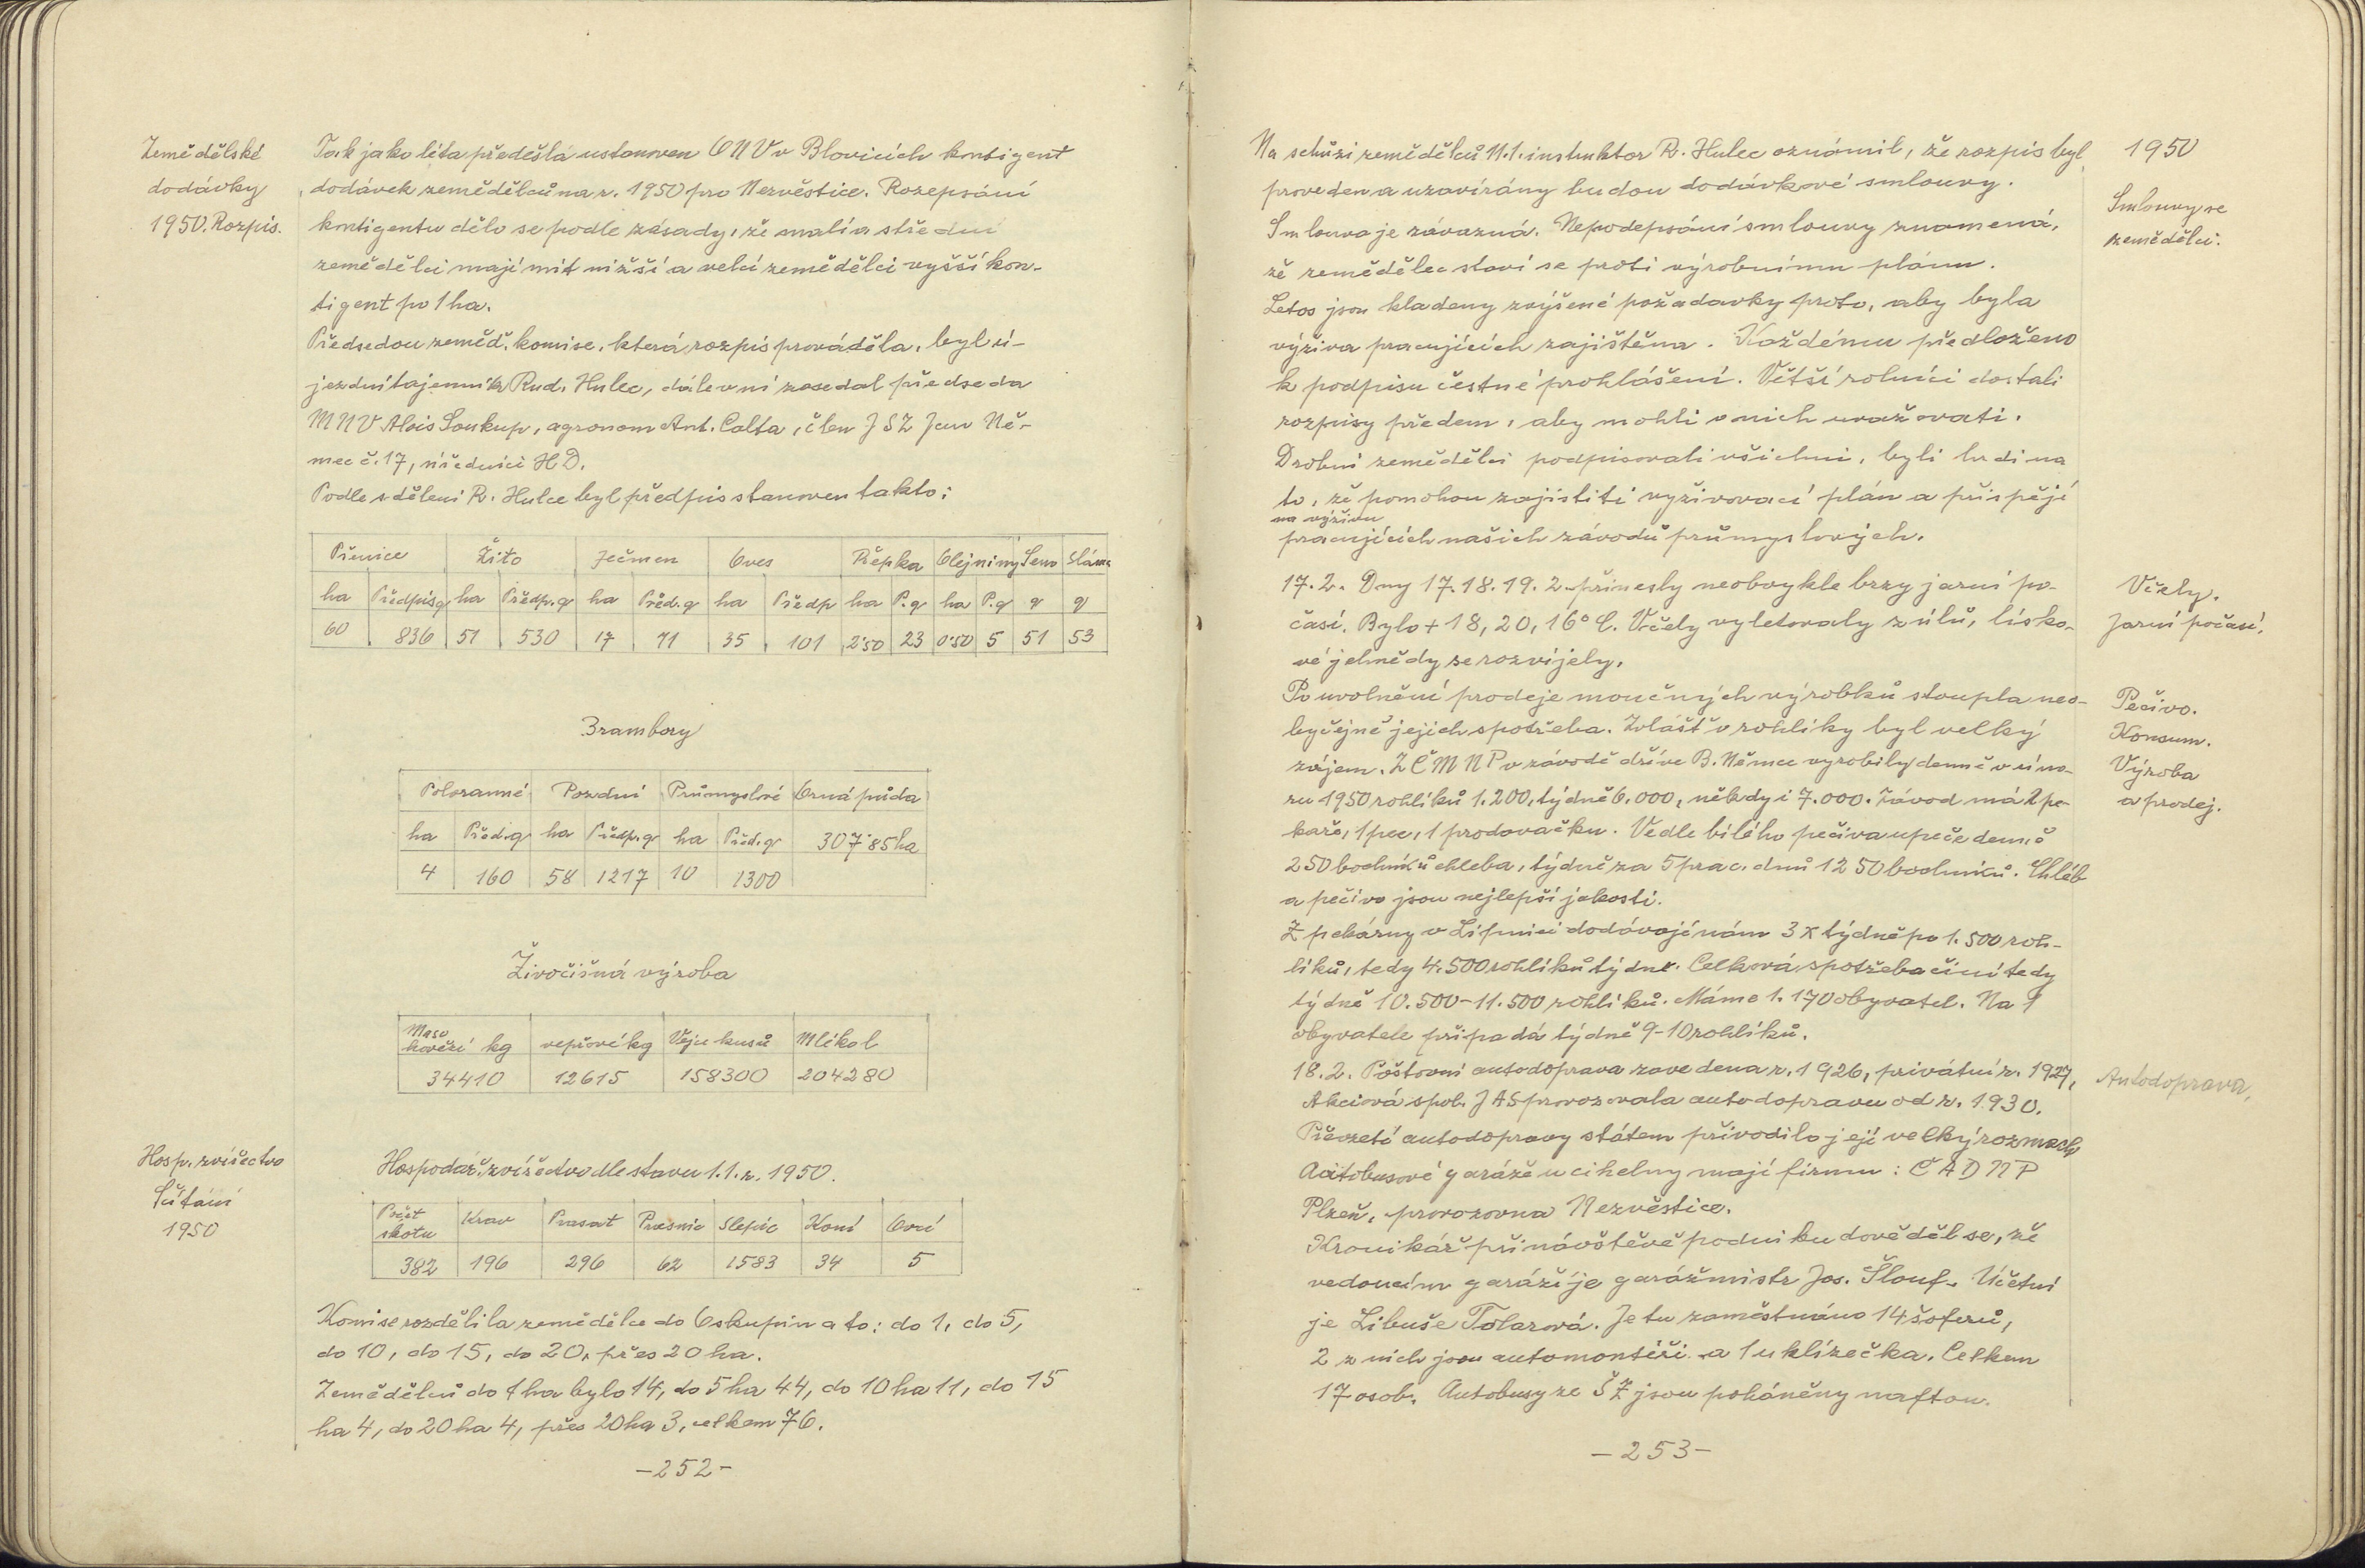 Zemědělské
dodávky
1950. Rozpis.
Tak jako léta předešlá ustanoven ONV v Blovicích kontigent
dodávek zemědělců na r. 1950 pro Nezvěstice. Rozepsání
kontigentu dělo se podle zásady, že malí a střední
zemědělci mají mít nižší a velcí zemědělci vyšší kon-
tigent po 1 ha.
Předsedou zeměd. komise, která rozpis prováděla, byl ú-
jezdní tajemník Rud. Hulec, dále v ní zasedal předseda
MNV Alois Soukup, agronom Ant. Calta, člen JSZ Jan Ně-
mec č. 17, úředníci HD.
Podle sdělení R. Hulce byl předpis stanoven takto:
Pšenice Žito Ječmen Oves Řepka Olejniny Seno Sláma
ha Předpis q ha Předp. q ha Před. q ha Předp ha P. q ha P. q q q
60 836 51 530 17 71 35 101 2'50 23 0'50 5 51 53
Brambory
Poloranné Pozdní Průmyslové Orná půda
ha Před. q ha Předp. q ha Před. q 307'85 ha
4 160 58 1217 10 1300
Živočišná výroba
Maso
hovězí kg vepřové kg Vejce kusů Mléko l
34410 12615 158300 204280
Hosp. zvířectvo
Sčítání
1950
Hospodář. zvířectvo dle stavu 1. 1. r. 1950.
Počet
skotu Krav Prasat Prasnic Slepic Koní Ovcí
382 196 296 62 1583 34 5
Komise rozdělila zemědělce do 6 skupin a to: do 1, do 5,
do 10, do 15, do 20, přes 20 ha.
Zemědělců do 1 ha bylo 14, do 5 ha 44, do 10 ha 11, do 15
ha 4, do 20 ha 4, přes 20 ha 3, celkem 76.
-252-
1950
Na schůzi zemědělců 11.1. instruktor R. Hulec oznámil, že rozpis byl
proveden a uzavírány budou dodávkové smlouvy.
Smlouvy se
zemědělci.
Smlouva je závazná. Nepodepsání smlouvy znamená,
že zemědělec staví se proti výrobnímu plánu.
Letos jsou kladeny zvýšené požadavky proto, aby byla
výživa pracujících zajištěna. Každému předloženo
k podpisu čestné prohlášení. Větší rolníci dostali
rozpisy předem, aby mohli o nich uvažovati.
Drobní zemědělci podpisovali všichni, byli hrdi na
to, že pomohou zajistiti vyživovací plán a přispějí
na výživu
pracujících našich závodů průmyslových.
Včely.
Jarní počasí.
17. 2. Dny 17. 18. 19. 2. přinesly neobvykle brzy jarní po-
časí. Bylo + 18, 20, 16° C. Včely vyletovaly z úlů, lísko-
vé jehnědy se rozvíjely.
Pečivo.
Konsum.
Výroba
a prodej.
Po uvolnění prodeje moučných výrobků stoupla neo-
byčejně jejich spotřeba. Zvláště o rohlíky byl velký
zájem. ZČM NP v závodě dříve B. Němec vyrobily denně v úno-
ru 1950 rohlíků 1.200, týdně 6.000, někdy i 7.000. Závod má 2 pe-
kaře, 1 pec, 1 prodavačku. Vedle bílého pečiva upeče denně
250 bochníků chleba, týdně za 5 prac. dnů 1250 bochníků. Chléb
a pečivo jsou nejlepší jakosti.
Z pekárny v Lipnici dodávají nám 3 x týdně po 1.500 roh-
líků, tedy 4.500 rohlíků týdně. Celková spotřeba činí tedy
týdně 10.500-11.500 rohlíků. Máme 1.170 obyvatel. Na 1
obyvatele připadá týdně 9-10 rohlíků.
Autodoprava.
18. 2. Poštovní autodoprava zavedena r. 1926, privátní r. 1927,
Akciová spol. JAS provozovala autodopravu od r. 1930.
Převzetí autodopravy státem přivodilo její velký rozmach
Autobusové garáže u cihelny mají firmu: ČAD NP
Plzeň, provozovna Nezvěstice.
Kronikář při návštěvě podniku dověděl se, že
vedoucím garáží je garážmistr Jos. Šlouf. Účetní
je Libuše Tolarová. Je tu zaměstnáno 14 šoférů,
2 z nich jsou automontéři a 1 uklízečka. Celkem
17 osob. Autobusy ze ŠZ jsou poháněny naftou.
-253-